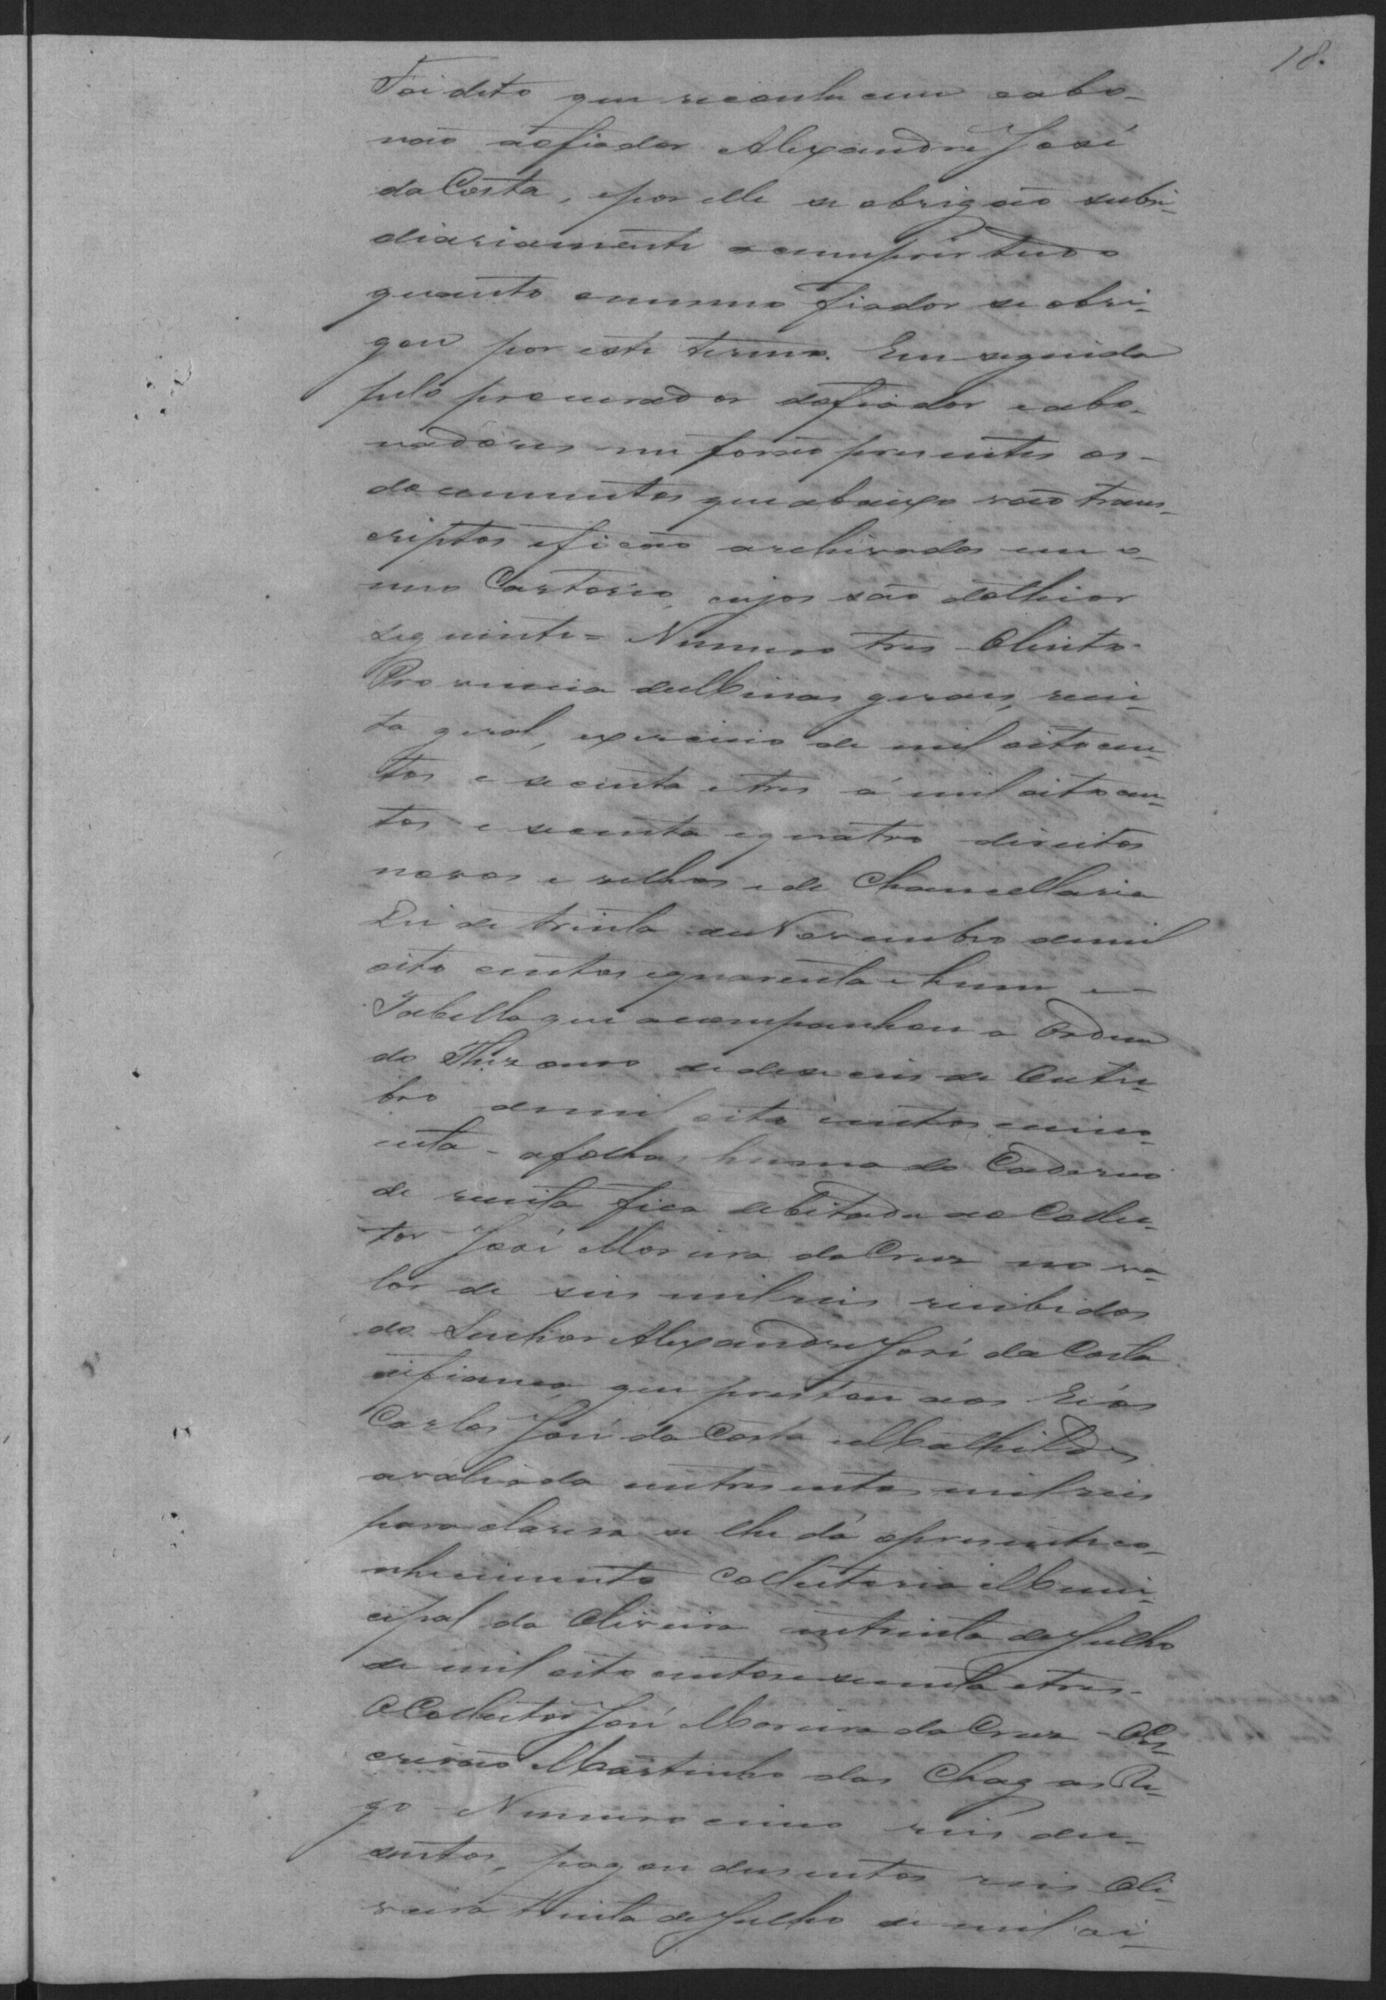 18.
Foi dito que reconhecem e abo-
não ao fiador Alexandre José
da Costa, e por elle se obrigão subsi-
diariamente a cumprir tudo
quanto o mesmo fiador se obri-
gou por este termo. Em seguida
pelo procurador do fiador e abo-
nadores me forão presentes os
documentos que abaixo vão trans-
criptos e ficão archivados em o
meu Cartorio, cujos são do theor
seguinte = Numero tres
Provincia de Minas geraes, recei-
ta geral, exercicio de mil oito cen-
tos e secenta e tres á mil oito cen-
tos e secenta e quatro direitos
novos e velhos e de Chancellaria
Lei de trinta de Novembro de mil
oito centos e quarenta e hum e
Tabella que acompanhou a Ordem
do Thezouro de dezeceis de Outu-
bro de mil oito centos e cinco-
enta - a folhas huma do Caderno
de receita fica debitado ao Collec-
tor José Moreira da Cruz no va-
lor de seis mil reis recebidos
do Senhor Alexandre José da Costa
fiança que prestou aos Réos
Carlos José da Costa e Mathildes
avaliada em tresentos mil reis
para clareza se lhe dá o presente co-
nhecimento Collectoria Muni-
cipal da Oliveira em trinta de Julho
de mil oito centos e secenta e tres -
O Collector José Moreira da Cruz - O Es-
crivão Martinho das Chagas Re-
go - Numero cinco reis du-
sentos, pagou dusentos reis Oli-
veira trinta de Julho de mil oi-